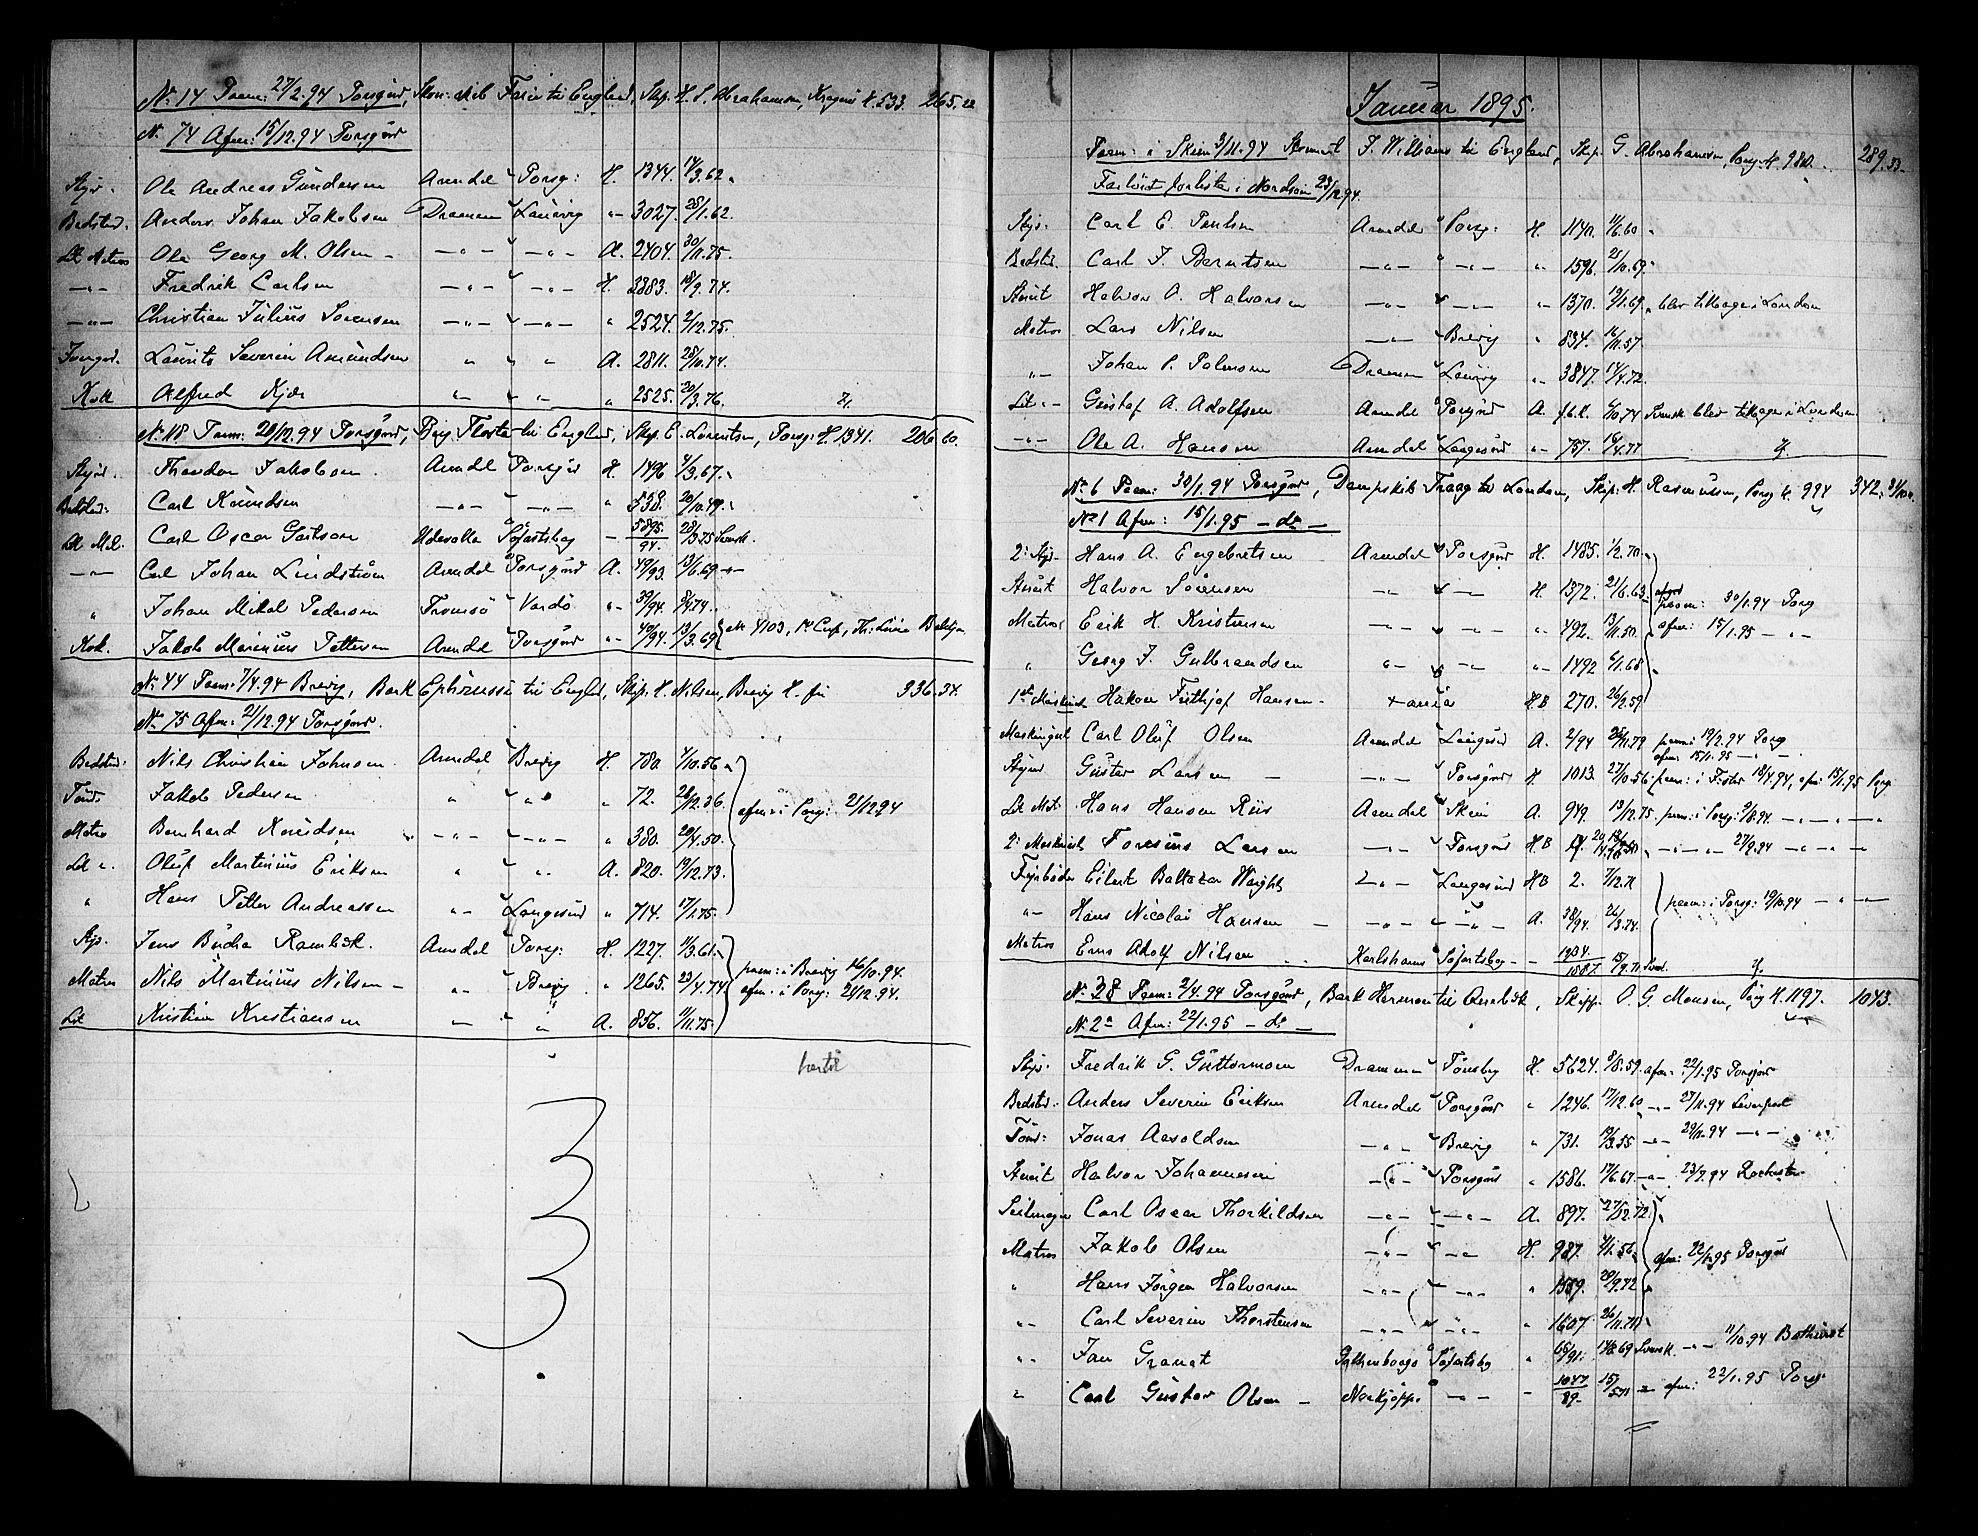 No. 14 Paam: 27/2.94 Porsgrund, Skon: skib Faria til England, Skp. H. S. Abrahamsen, Kragerø H. 533. 265.22
No. 74 Afm: 15/12.94 Porsgrund
Styr. Ole Andreas Gundersen Arendal Porsg: H. 1344. 14/3.62.
Bedstmd. Anders Johan Jakobsen Drammen Laurvig „ 3027. 28/1.62.
Let Matros Ole Georg M. Olsen — „ — — „ — A. 2404. 30/11.75.
— „ — Fredrik Carlsen — „ — — „ — H. 3883. 18/9.74.
— „ — Christian Julius Sorensen — „ — — „ — „ 2524. 2/12.75.
Jungmd. Laurits Severin Amundsen „ „ A. 2811. 25/10.74.
Kok Alfred Kjær „ „ „ 2525. 20/3.76.
No. 118 Paam: 20/12.94 Porsgrund, Brig Flora til England, Skp. E. Lorentsen, Porsg: H. 1341. 206.60.
Styrd. Theodor Jakobsen Arendal Porsgrd H. 1496 4/3.67.
Bedstmd: Carl Knudsen — „ — — „ — „ 538. 20/10.49.
Let Mat. Carl Oscar Udevalla Søfartsbog — 5895/94. 28/3.75 Svensk.
— „ — Carl Johan Lindstrøm Arendal Porsgrund A. 49/93. 13/6.69 —„—
„ Johan Mikal Pedersen Tromsø Vardø „ 39/94. 74.
Kok. Jakob Marinius Pettersen Arendal Porsgrund „ 40/94. 13/3.69
No. 44 Paam: 7/4.94 Brevig, Bark Ephrussi til England, Skip. H. Nilsen, Brevig H. 336.34.
No. 75 Afm: 21/12.94 Porsgrund.
Bedstmd: Nils Christian Johnsen. Arendal Brevig H. 780. 4/10.56
Tømd: Jakob Pedersen „ „ „ 72. 28/12.36. afm: i Porsg: 21/12.94
Matros Bernhard Knudsen — „ — — „ — „ 380. 20/4.50.
Let „ Oluf Martinius Eriksen „ „ A. 820. 19/12.73.
„ Hans Petter Andreassen „ Langesund „ 714. 17/1.75.
Styr. Jens Buche Rambæk. Arendal Porsg: H. 1227. 11/3.61. paam: i Brevig 16/10.94.
Matros Nils Martinius Nilsen — „ Brevig „ 1265. 23/4.74 afm. i Porsg: 21/12.94.
Let Kristian Kristiansen — „ A. 856. 11/11.75.
hertil
Januar 1895.
Paam: i Skien 3/11.94 J. Williams til England, Skip. G. Abrahamsen, Porsg H. 980. 289.33.
Farlist forlist i Nordsøen 23/12.94.
Styr. Carl E. Paulsen Arendal Porsg: H. 1140. 11/6.60
Bedstmd. Carl J. Berntsen — „ — — „ — „ 1596. 21/10.69.
Stuert Halvor A. Halvorsen — „ — — „ — „ 1370. 19/1.69. blev tilbage i London
Matros Lars Nilsen — „ — Brevig „ 834. 16/11.57
„ — Johan P. Palmsen Drammen Laurvig „ 3847. 14/4.72.
Let „ — Gustaf A. Adolfsen Arendal Porsgrund A. 6/10.74 Svensk blev tilbage i London
— „ — Ole A. Hansen Arendal Langesund „ 757. 16/4.77
No. 6 Paam: 30/1.94 Porsgrund, Dampskib Traag til London, Skip: H. Rasmussen, Porsg H. 994 342. 31/100.
No. 1 Afm: 15/1.95 — do —
2: Styr. Hans A. Engebretsen Arendal Porsgrund H. 1485. 1/2.70.
Stuert Halvor Sörensen — „ — „ — H. 1372. 21/6.63. paam: 30/1.94 Porsg
Matros Erik H. Kristensen — „ — — „ — „ 492. 13/11.50. afm: 15/1.95 — „ —
„ Georg J. Gulbrandsen „ — — „ — „ 1492 6/1.68
1ste Maskinist Hakon Frithjof Hansen — Xania H.B 270. 26/2.59
Maskinist Carl Oluf Olsen Arendal Langesund A. 2/94 26/11.79 paam: 19/2.94 Porsg afm: 15/1.95 — „ —
Styrmd Gustav Larsen — — „ — Porsgrund H. 1013. 27/10.56 paam: i Fister 18/4.94, afm: 15/1.95 Porsg
Let Mat. Hans Hansen Riis Arendal Skien A. 949. 13/12.75. paam: i Porsg: 9/8.94. — „ — „ —
2: Maskinist Forsius Larsen — „ — Porsgrund H.B — „ — „ 27/9.94 — „ — „ —
Fyrbøder Eilert Baltazar Weight — „ — Langesund H.B 2. 7/12.71 paam: i Porsg: 19/10.94 — „ —
„ — Hans Nicolai Hansen — — „ — — „ — A. 38/94. 26/3.74.
Matros Ernst Adolf Nilsen „ Karlshamn Søfartsbog — 1934/1887. 15/9.71 Svensk.
No. 28 Paam: 2/4.94 Porsgrund, Bark Herman til Amerika, Skipp. O. G. Monsen, Porsg H. 1197. 1043.
No. 2a Afm: 22/1.95 — do —
Styr. Fredrik G. Guttormsen Drammen Tönsberg H. 5624. 8/8.59. afm: 22/1.95 Porsgrund
Bedstmd: Anders Severin Eriksen Arendal Porsgrund „ 1246. 17/12.60 — „ — 27/11.94 Liverpool
Tömd: Jonas Aaroldsen — „ — Brevig „ 731. 19/3.55 — „ — 29/11.94 — „ —
Stuert Halvor Johannesen — „ — Porsgrund — 1586. 17/6.67 — „ — 23/7.94 Rochester
Seilmager Carl Oscar Thorkildsen — „ — — „ — A. 897. 27/12.72.
Matros Jakob Olsen — „ — — „ — H. 987. 4/1.56. afm: 22/1.95 Porsgrund
„ Hans Jörgen Halvorsen — „ — — „ — „ 1559. 20/9.72
„ — Carl Severin Thorstensen — „ — „ — „ 1607. 26/11.71.
„ — Jan Granat Gothenborgs Søfartsbog „ 65/91. 69 Svensk. — „ — 11/10.94 Bathurst
„ Carl Gustav Olsen — Norkjøpp. — „ — — 1047/89. afm: 22/1.95 Porsg.